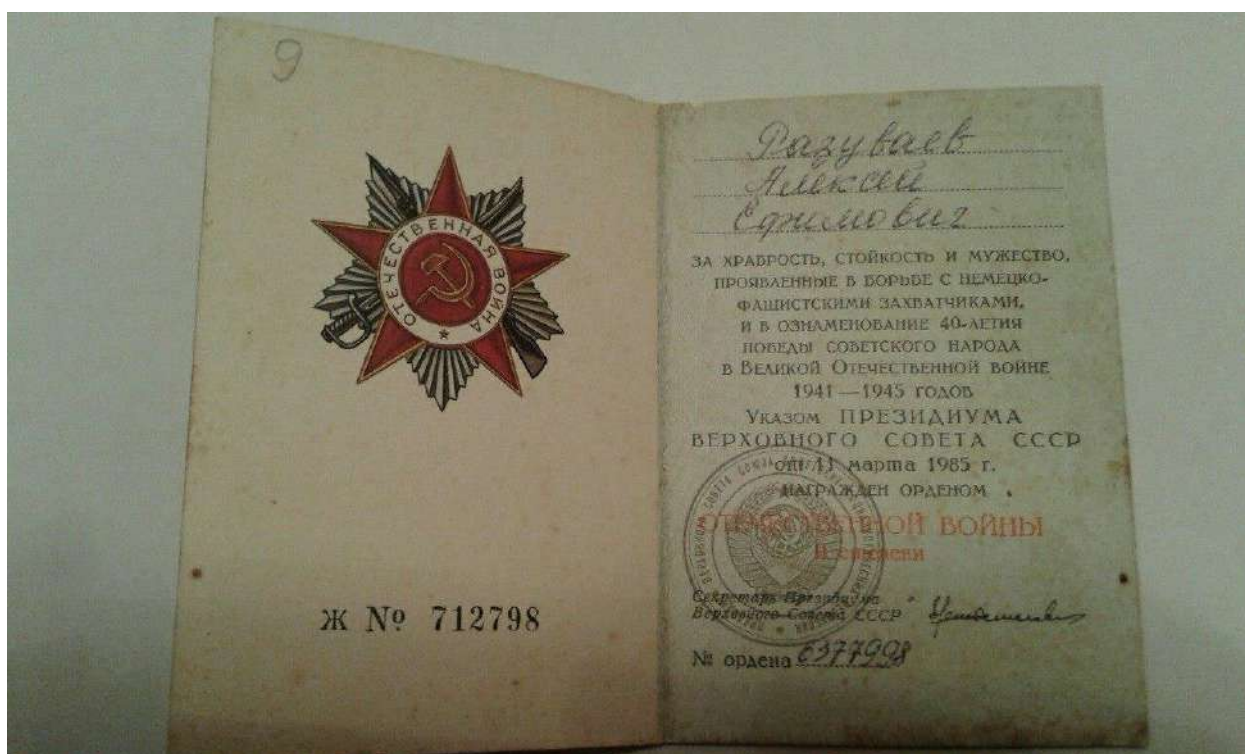 9
ОТЕЧЕСТВЕННАЯ ВОЙНА
Ж № 712798
Разуваев
Алексей
Ефимович
ЗА ХРАБРОСТЬ, СТОЙКОСТЬ И МУЖЕСТВО,
ПРОЯВЛЕННЫЕ В БОРЬБЕ С НЕМЕЦКО-
ФАШИСТСКИМИ ЗАХВАТЧИКАМИ,
И В ОЗНАМЕНОВАНИЕ 40-ЛЕТИЯ
ПОБЕДЫ СОВЕТСКОГО НАРОДА
В ВЕЛИКОЙ ОТЕЧЕСТВЕННОЙ ВОЙНЕ
1941—1945 ГОДОВ
УКАЗОМ ПРЕЗИДИУМА
ВЕРХОВНОГО СОВЕТА СССР
от 11 марта 1985 г.
НАГРАЖДЕН ОРДЕНОМ
ОТЕЧЕСТВЕННОЙ ВОЙНЫ
II степени
Секретарь Президиума
Верховного Совета СССР
№ ордена 6377998